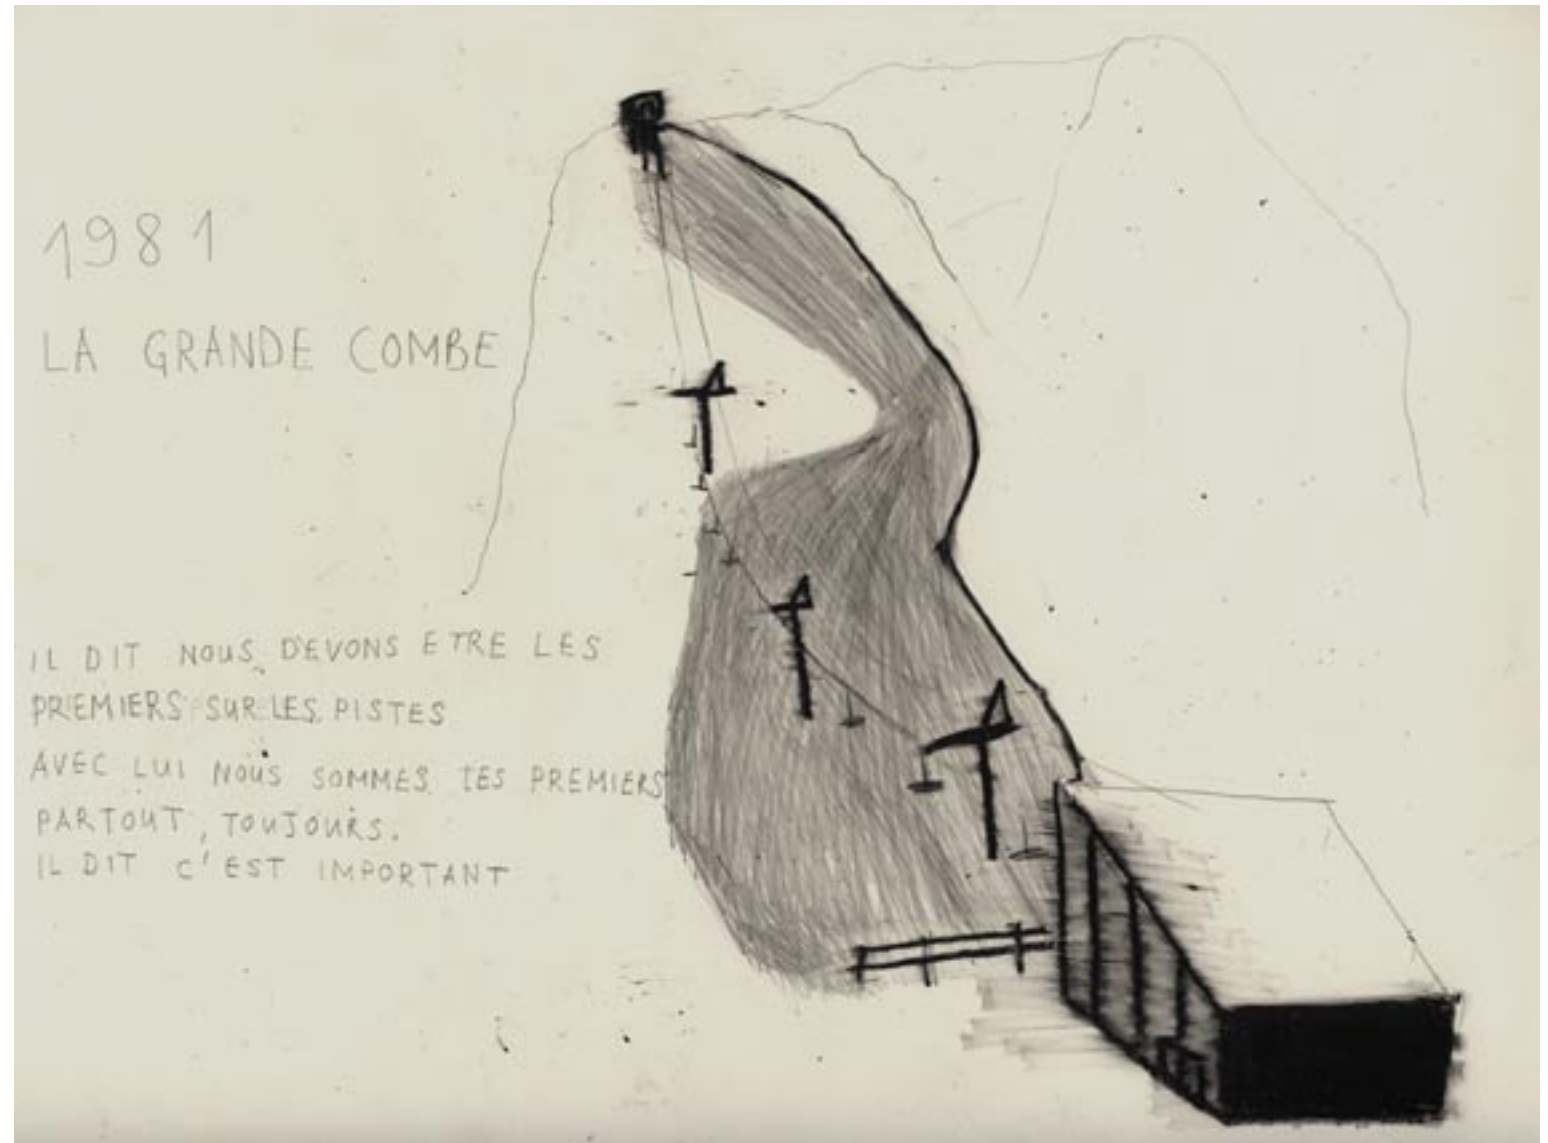 1981
LA GRANDE COMBE
IL DIT NOUS DEVONS ETRE LES
PREMIERS SUR LES PISTES
AVEC LUI NOUS SOMMES LES PREMIERS
PARTOUT, TOUJOURS.
IL DIT C'EST IMPORTANT